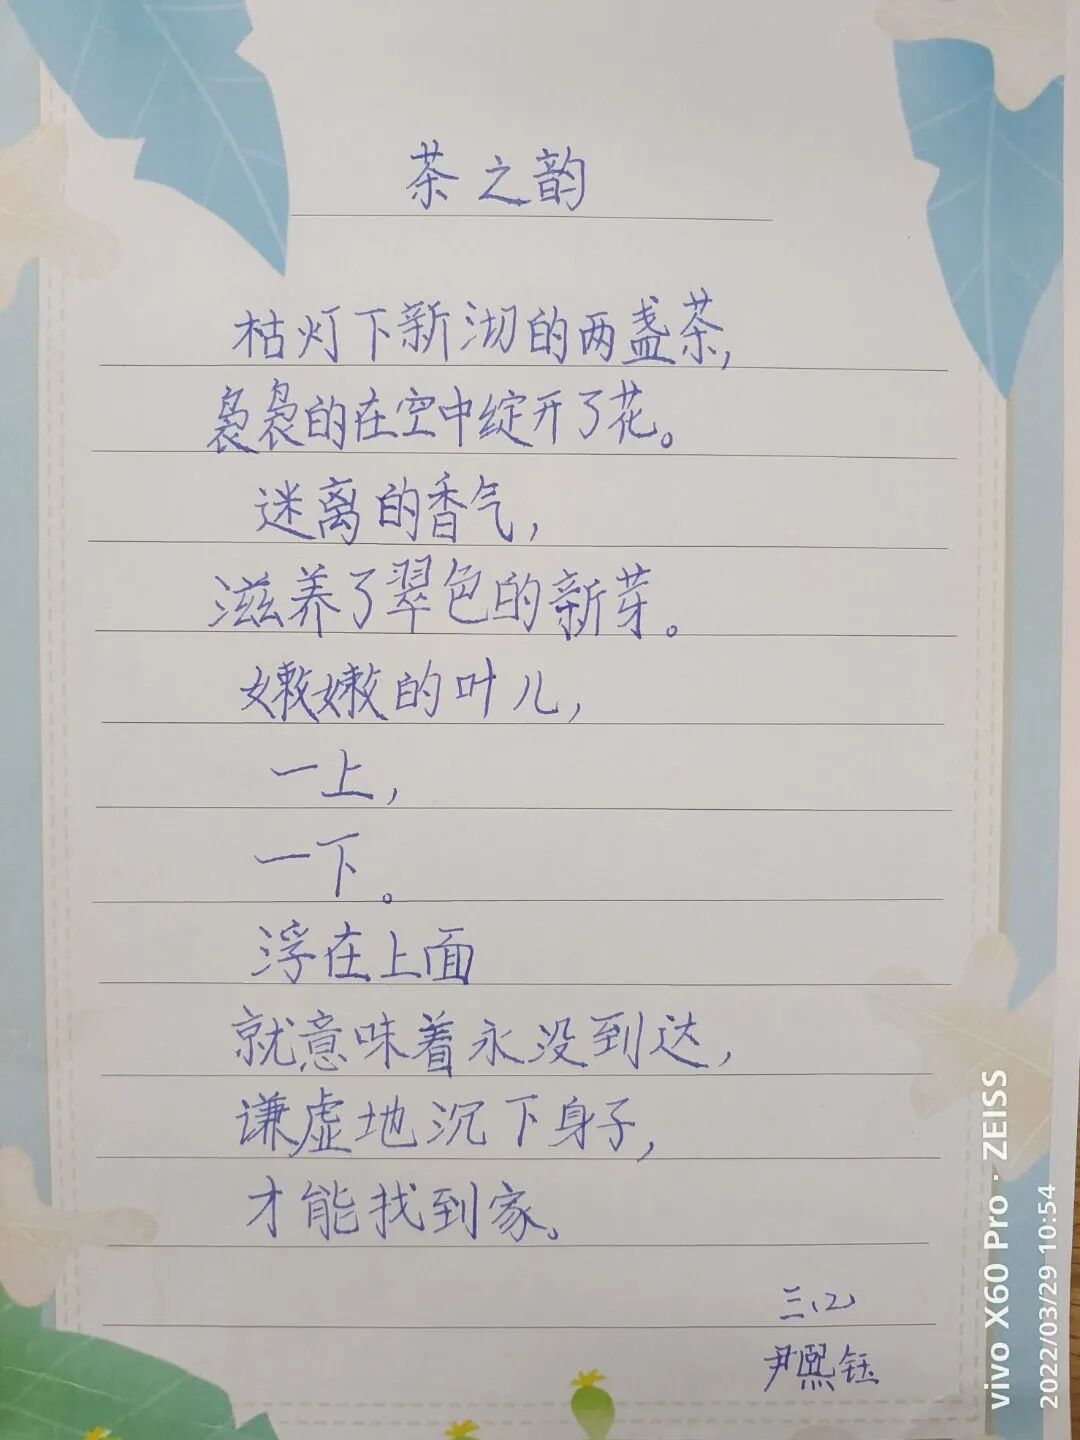 茶之韵
枯灯下新沏的两盏茶,
袅袅的在空中绽开了花。
迷离的香气,
滋养了翠色的新芽。
嫩嫩的叶儿,
一上,
一下。
浮在上面
就意味着永没到达,
谦虚地沉下身子,
才能找到家。
三(2)
尹熙钰
vivo X60 Pro · ZEISS
2022/03/29 10:54